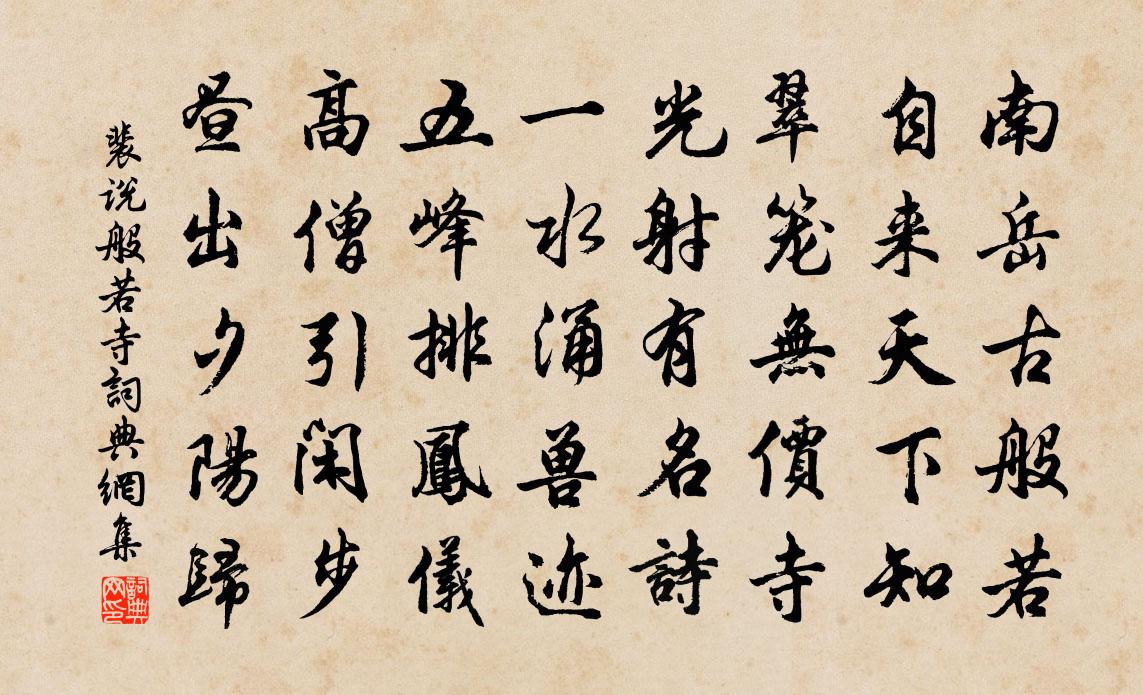 南岳古般若
自来天下知
翠笼無價寺
光射有名詩
一水涌兽迹
五峰排鳳儀
高僧引閑步
昼出夕陽歸
裴说般若寺詞典網集
詞典网印